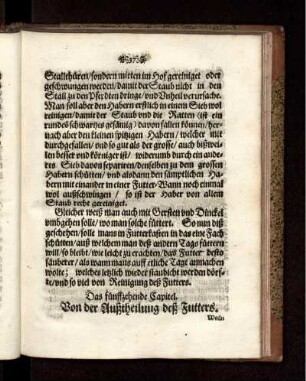 Stallthüren/ sondern mitten im Hof gereiniget oder
geschwungen werden/ damit der Staub nicht in den
Stall zu den Pferdten dringe/ und Unheil verursache.
Man soll aber den Habern erstlich in einem Sieb wol
reinigen/ damit der Staub und die Ratten (ist ein
rundes schwartzes gesämig/ davon fallen können/ her-
nach aber den kleinen spitzigen Habern/ welcher mit
durchgefallen/ und so gut als der grosse/ auch bißwei-
len besser und körniger ist/ widerumb durch ein ande-
res Sieb davon separiren/ denselben zu dem grossen
Habern schütten/ und alsdann den sämptlichen Ha-
bern mit einander in einer Futter-Wann noch einmal
wol außschwingen/ so ist der Haber von altem
Staub recht gereiniget.
Gleicher weiß man auch mit Gersten und Dinckel
umbgehen solle/ wo man solche füttert. So nun diß
geschehen/ solle mans in Futterkasten in das eine Fach
schütten/ auß welchem man deß andern Tags füttern
will/ so bleibt/ wie leicht zu erachten/ das Futter desto
säuberer/ als wann mans auff etliche Tage anmachen
wolte; welches letzlich wieder staubicht werden dörff-
te/ und so viel von Reinigung deß Futters.
Das fünffzehende Capitel.
Von der Außtheilung deß Futters.